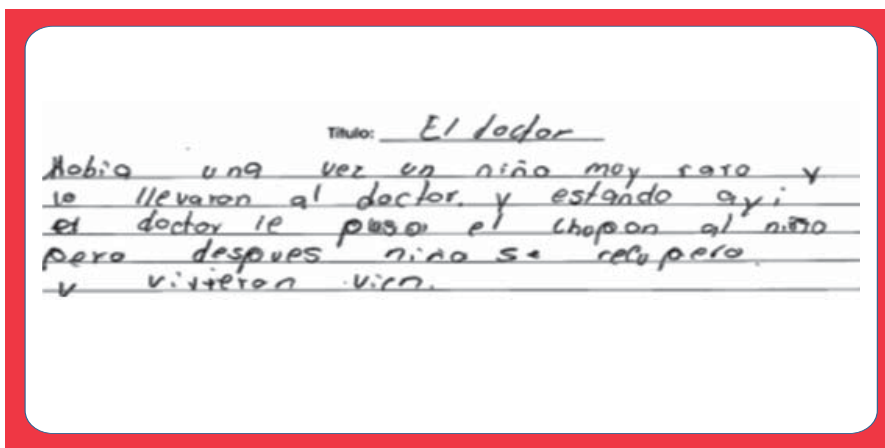 Título: El doctor
Habia una vez un niño muy raro y
lo llevaron al doctor. y estando ayi
el doctor le puso el chopon al niño
pero despues niño se recupero.
y vivieron vien.